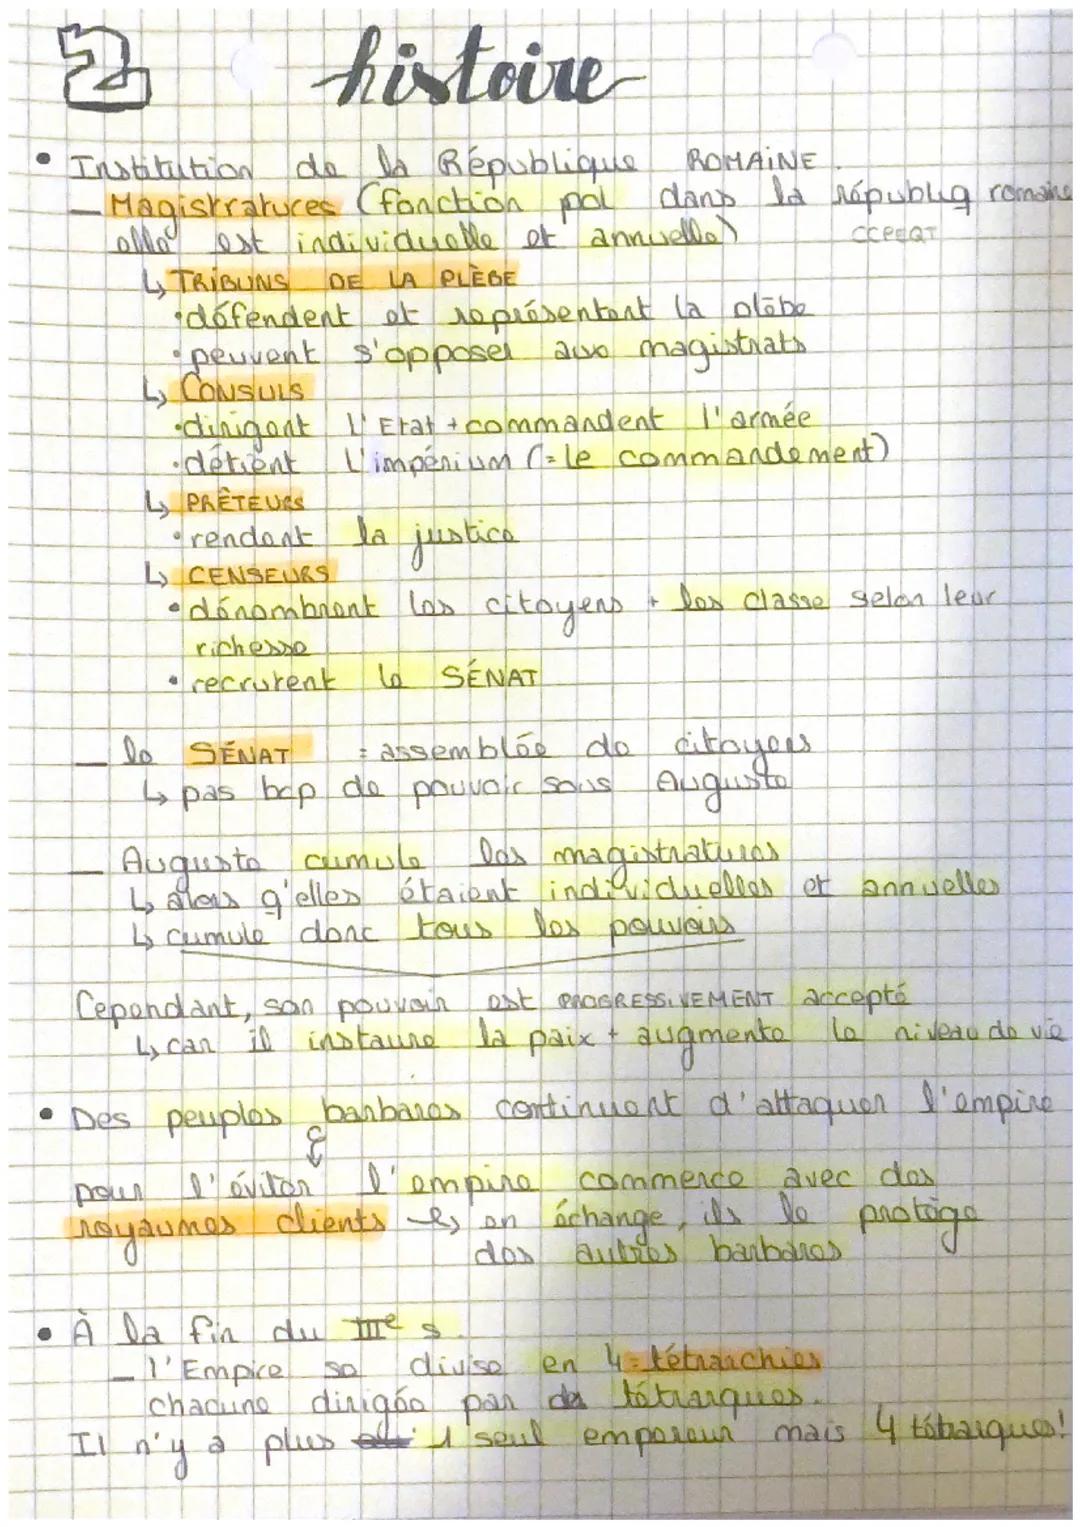 2 histoire
• Institution de la République ROMAINE.
— Magistratures (fonction pol dans la républiq romaine
elle est individuelle et annuelle)
↳ TRIBUNS DE LA PLÈBE
• défendent et représentent la plèbe
• peuvent s'opposer aux magistrats
↳ CONSULS
• dirigent l'Etat + commandent l'armée
• détient l'impérium (= le commandement)
↳ PRÊTEURS
• rendent la justice
↳ CENSEURS
• dénombrent les citoyens + les classe selon leur
richesse
• recrutent le SÉNAT
— le SÉNAT = assemblée de citoyens
↳ pas bcp de pouvoir sous Auguste
— Auguste cumule les magistratures
↳ alors q'elles étaient individuelles et annuelles
↳ cumule donc tous les pouvoirs
Cependant, son pouvoir est PROGRESSIVEMENT accepté
↳ car il instaure la paix + augmente le niveau de vie
• Des peuples barbares continuent d'attaquer l'empire
pour l'éviter l'empire commerce avec des
royaumes clients ↳ en échange, ils le protège
des autres barbares
• À la fin du IIIe s.
— l'Empire se divise en 4 = tétrarchies
chacune dirigée par des tétrarques.
Il n'y a plus 1 seul empereur mais 4 tétrarques!